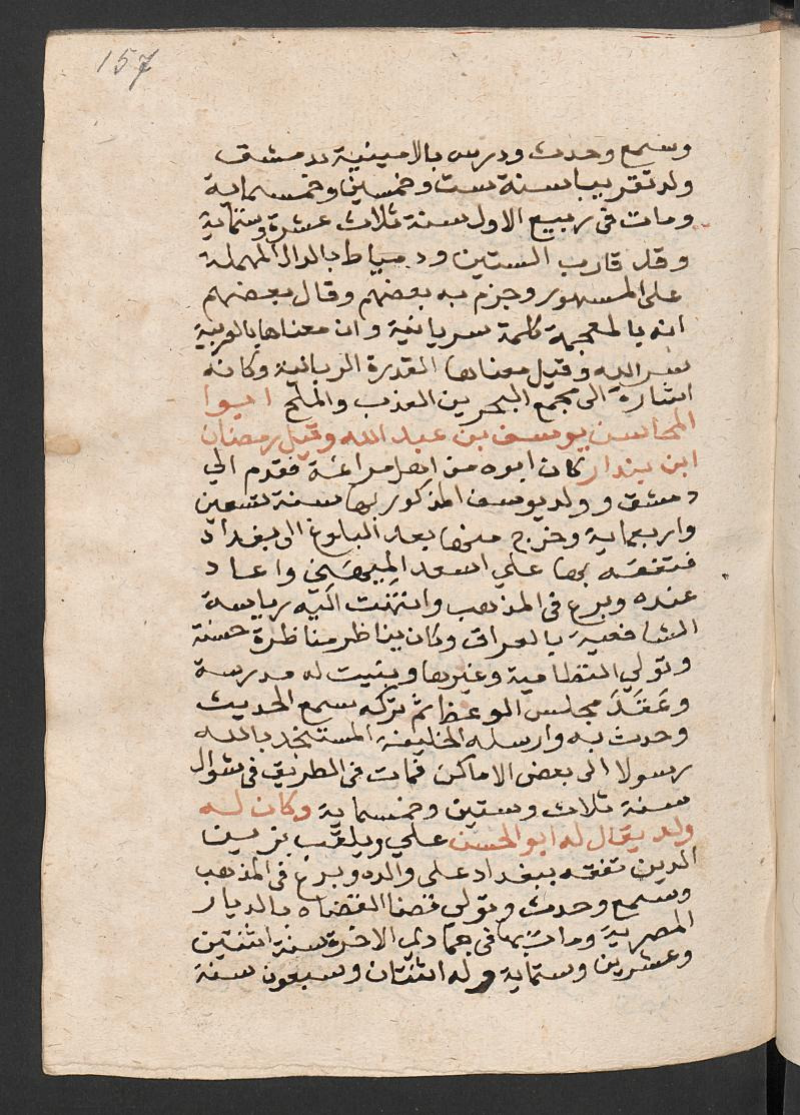 157
وسمع وحدث ودرس بالامينية بدمشق
ولد تقريبا سنة ست وخمسين وخمسماية
ومات في ربيع الاول سنة ثلاث عشرة وستماية
وقد قارب الستين ودمياط بالدال المهملة
على المشهور وجزم به بعضهم وقال بعضهم
انه بالمعجمة كلمة سريانية وان معناها بالعربية
سر الله وقيل معناها القدرة الربانية وكانه
اشارة الى مجمع البحرين العذب والملح ابوا
المحاسن يوسف بن عبد الله وقيل رمضان
ابن بندار كان ابوه من اهل مراغة فقدم الي
دمشق وولد يوسف المذكور بها سنة تسعين
واربعماية وخرج منها بعد البلوغ الى بغداد
فتفقه بها علي اسعد الميهني واعاد
عنده وبرع في المذهب وانتهت اليه رياسة
الشافعية بالعراق وكان يناظر مناظرة حسنة
وتولي النظامية وغيرها وبنيت له مدرسة
وعقد مجلس الوعظ ثم تركه سمع الحديث
وحدث به وارسله الخليفة المستنجد بالله
رسولا الى بعض الاماكن فمات في الطريق في شوال
سنة ثلاث وستين وخمسماية وكان له
ولد يقال له ابو الحسن علي ويلقب بزين
الدين تفقه ببغداد على والده وبرع في المذهب
وسمع وحدث وتولي قضا القضاه بالديار
المصرية ومات بها في جمادي الاخرة سنة اثنتين
وعشرين وستماية وله اثنتان وسبعون سنة